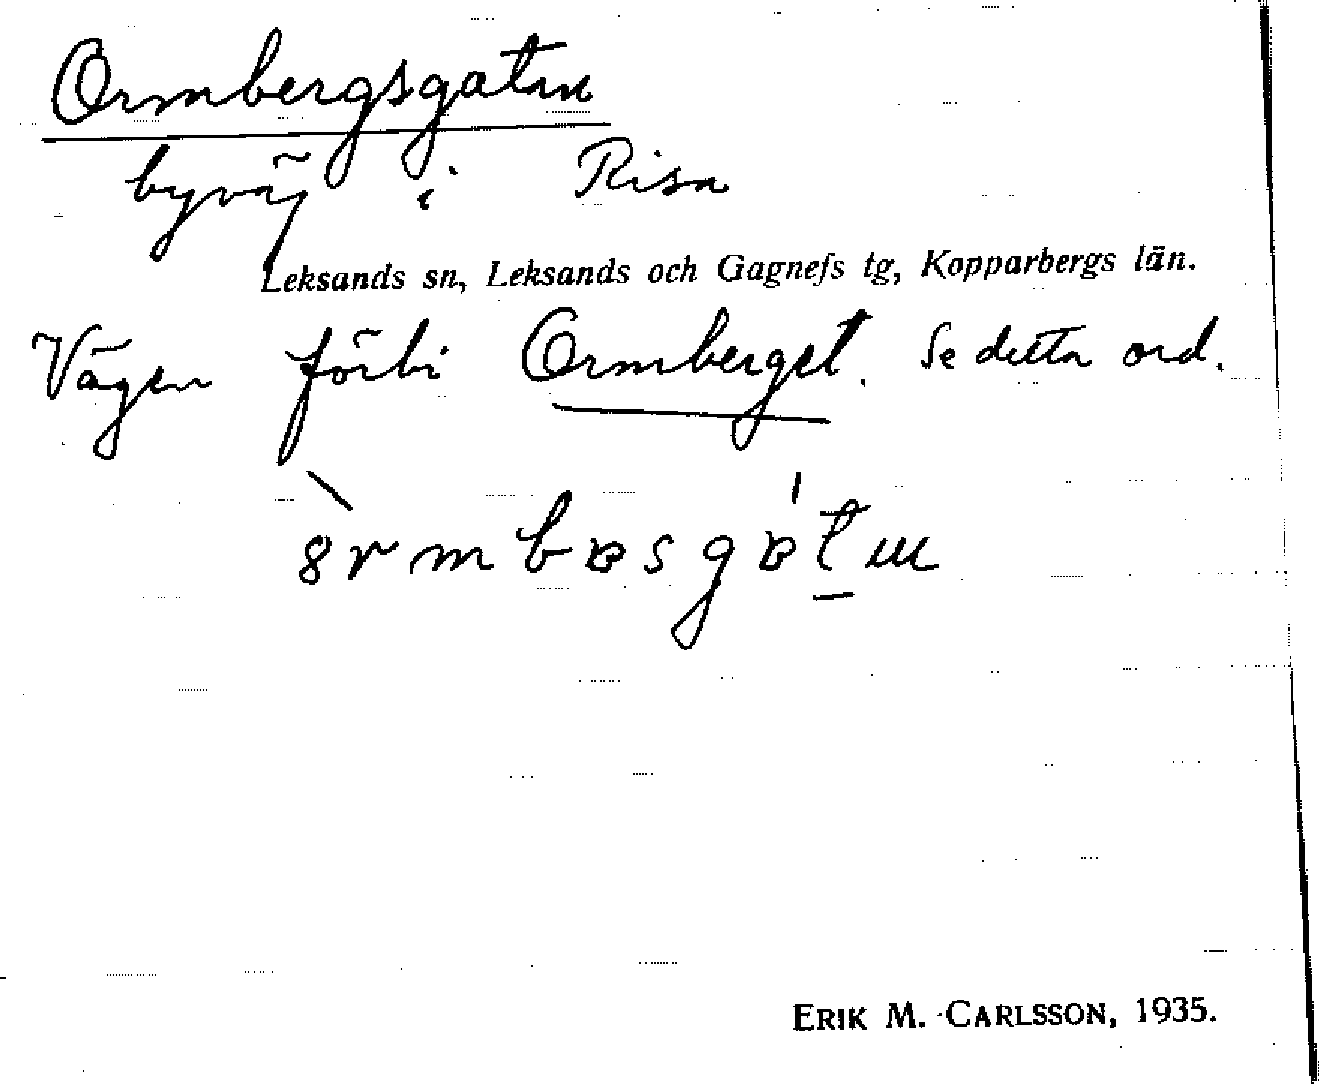 Ormbergsgatan
byväg i Risa
Leksands sn, Leksands och Gagnefs tg, Kopparbergs län.
Vägen förbi Ormberget. Se detta ord.
ERIK M. CARLSSON, 1935.